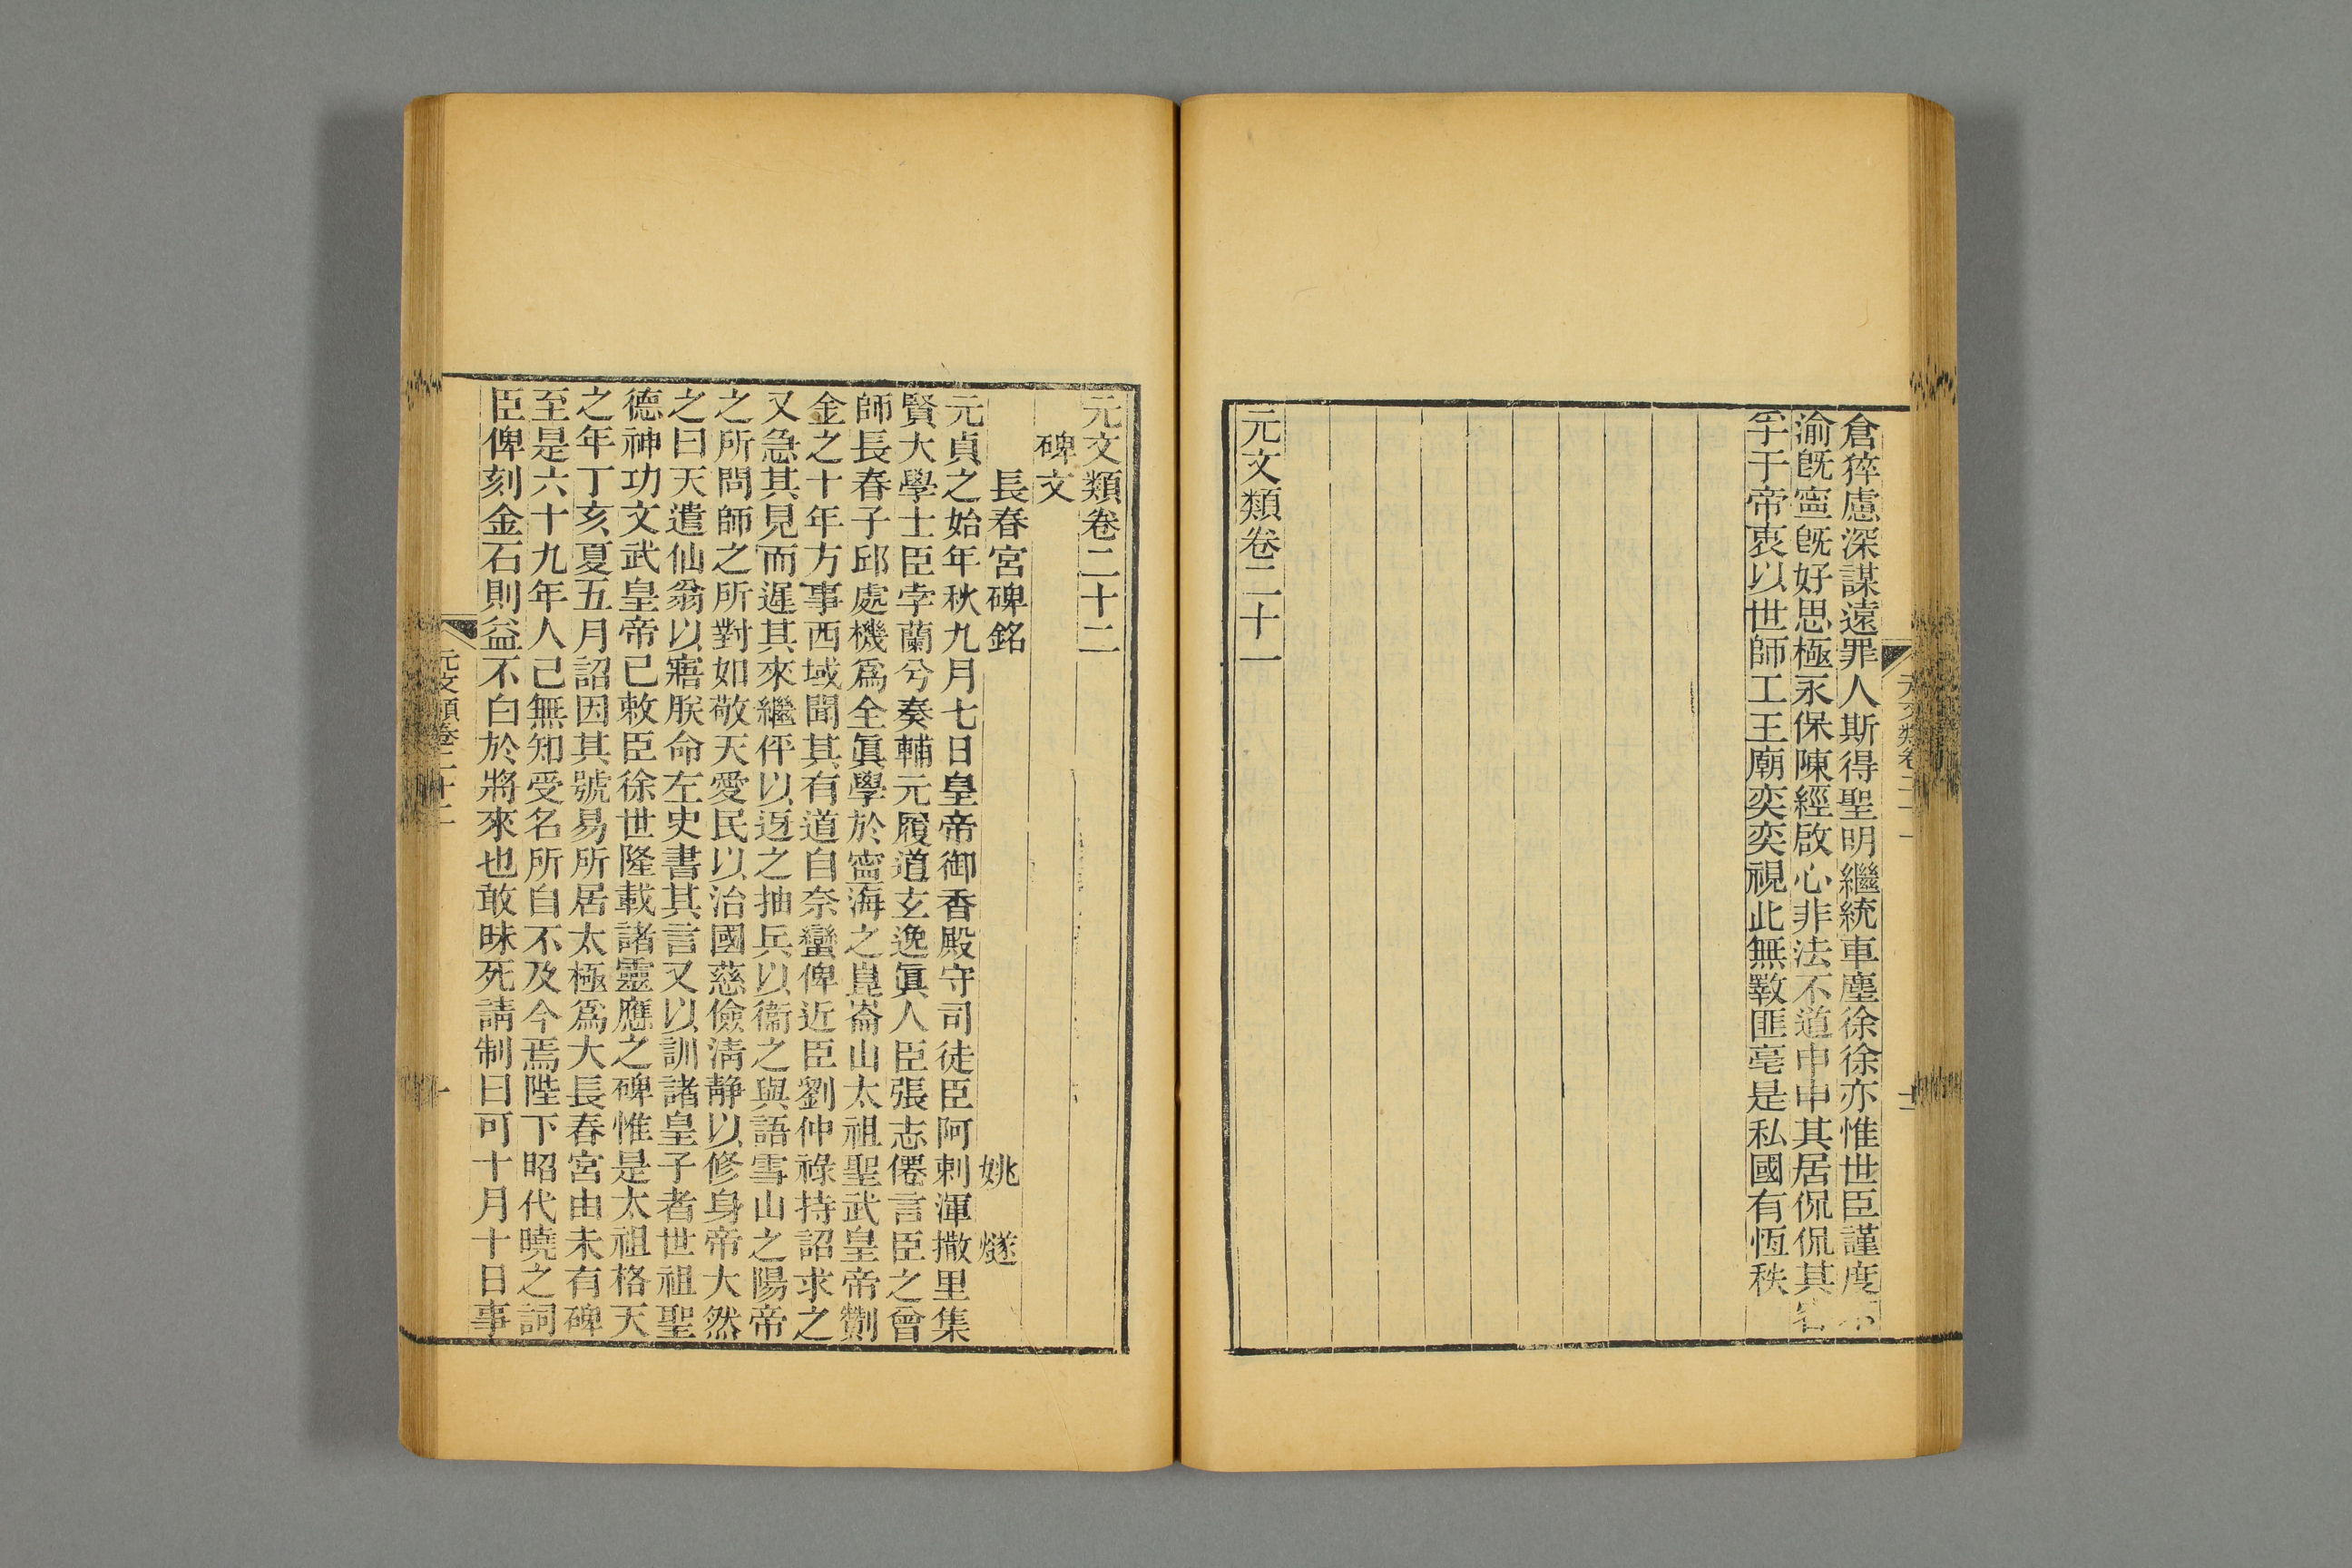 倉猝慮深謀遠罪人斯得聖明繼統車塵徐徐亦惟世臣謹度
渝旣寧旣好思極永保陳經啟心非法不道申申其居侃侃其
孚于帝衷以世師工王廟奕奕視此無斁匪亳是私國有恆秩
元文類卷二十一
元文類卷二十一
元文類卷二十二
碑文
長春宮碑銘
姚燧
元貞之始年秋九月七日皇帝御香殿守司徒臣阿剌渾撒里集
賢大學士臣孛蘭兮奏輔元履道玄逸眞人臣張志僊言臣之曾
師長春子邱處機爲全眞學於寧海之崑崙山太祖聖武皇帝劗
金之十年方事西域聞其有道自奈蠻俾近臣劉仲祿持詔求之
又急其見而遲其來繼伻以迓之抽兵以衞之與語雪山之陽帝
之所問師之所對如敬天愛民以治國慈儉淸靜以修身帝大然
之曰天遣仙翁以寤朕命左史書其言又以訓諸皇子者世祖聖
德神功文武皇帝已敕臣徐世隆載諸靈應之碑惟是太祖格天
之年丁亥夏五月詔因其號易所居太極爲大長春宮由未有碑
至是六十九年人己無知受名所自不及今焉陛下昭代曉之詞
臣俾刻金石則益不白於將來也敢昧死請制曰可十月十日事
元文類卷二十二
一